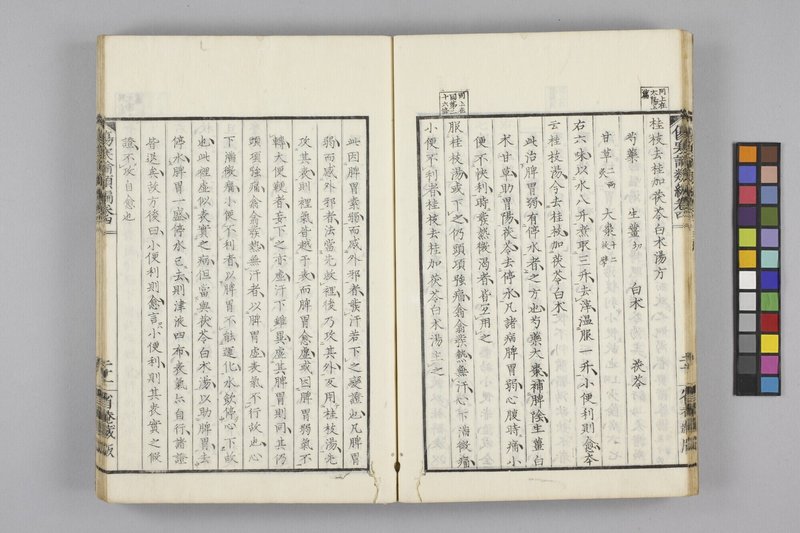 同上在太陽上篇
桂枝去桂加茯苓白朮湯方
芍藥 生薑切 白朮 茯苓
甘草炙二兩 大棗十二枚擘
右六味以水八升煮取三升去滓溫服一升小便利則愈本
云桂枝湯今去桂枝加茯苓白朮
此治脾胃弱有停水者之方也芍藥大棗補脾陰生薑白
朮甘草助胃陽茯苓去停水凡諸病脾胃弱心腹時痛小
便不快利時發熱微渴者皆可用之
服桂枝湯或下之仍頭項強痛翕翕發熱無汗心下滿微痛
小便不利者桂枝去桂加茯苓白朮湯主之
此因脾胃素弱而感外邪者發汗若下之變證也凡脾胃
弱而感外邪者法當先救裡後乃攻其外反用桂枝湯先
攻其表則裡氣皆越于表而脾胃愈虛或因脾胃弱氣不
轉大便硬者妄下之亦虛汗下雖異虛其脾胃則同其仍
頭項強痛翕翕發熱無汗者以脾胃虛表氣不行故也心
下滿微痛小便不利者以脾胃不能運化水飲停心下故
也此裡虛似表實之病但當與茯苓白朮湯以助脾胃去
停水脾胃一盛停水已去則津液四布表氣亦自行諸證
皆退矣故方後曰小便利則愈言小便利則其表實之候
證不攻自愈也
傷寒論類編卷四